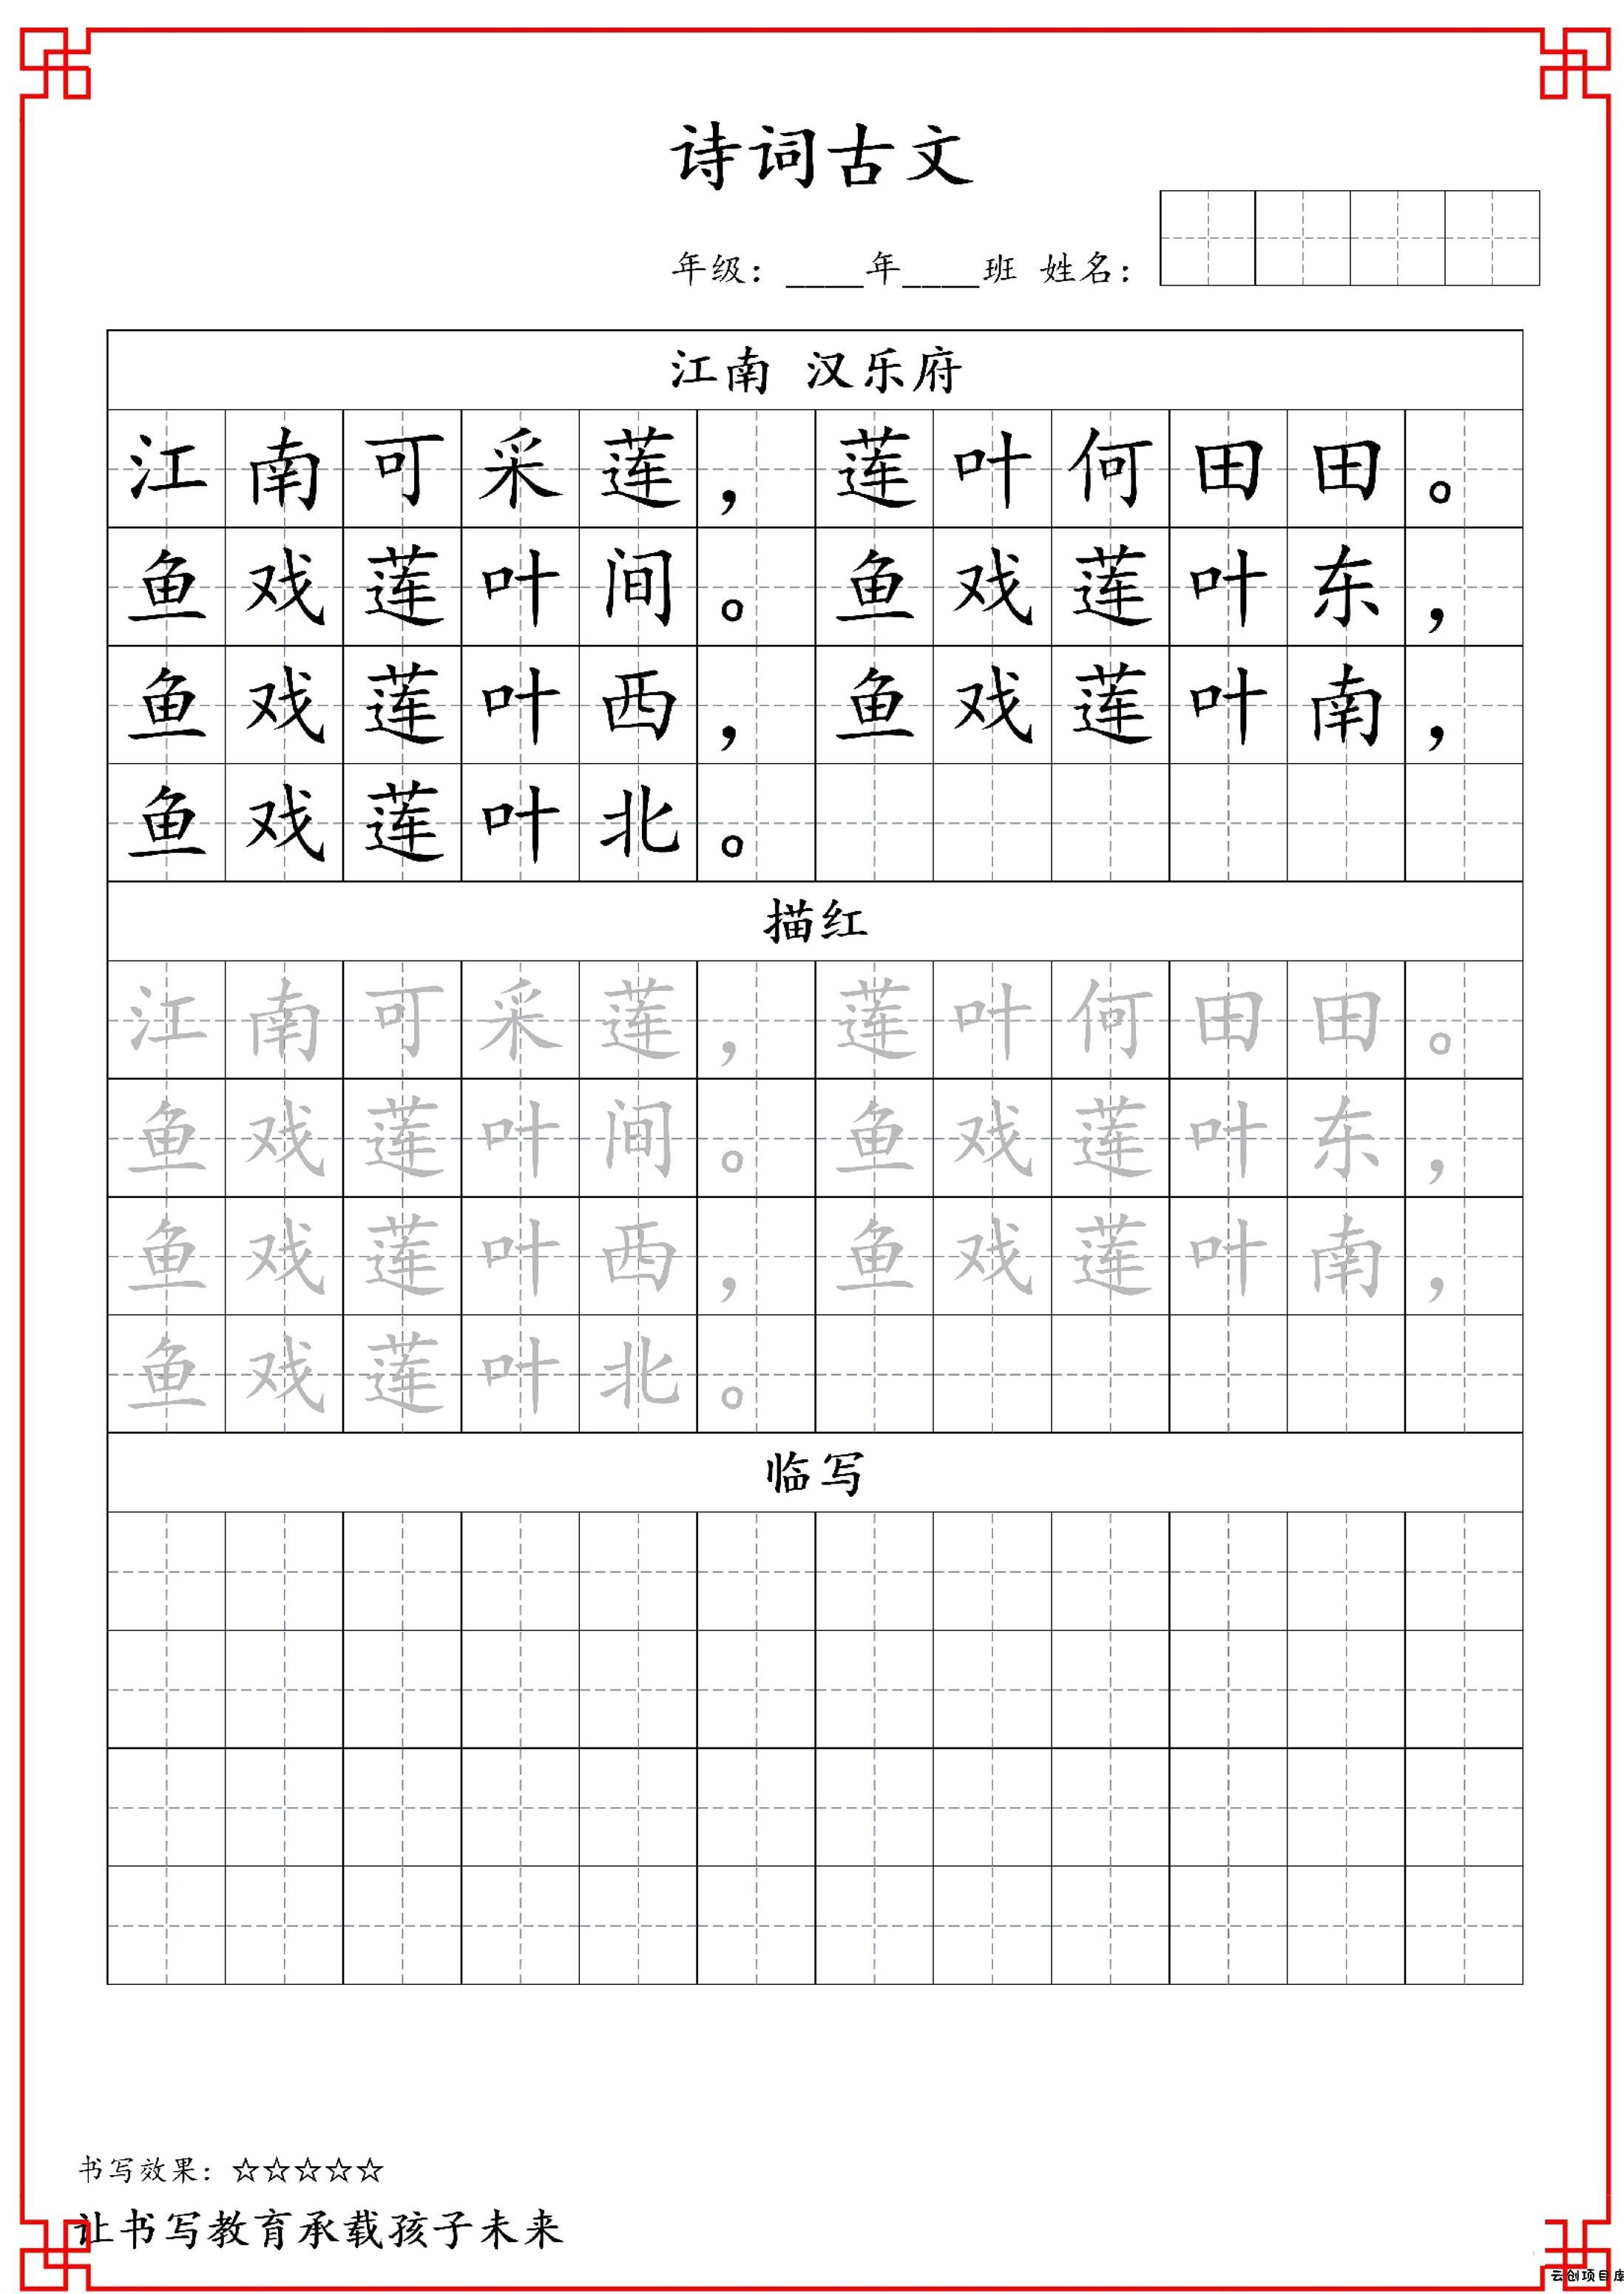 诗词古文
年级：____年____班 姓名：
江南 汉乐府
江南可采莲，莲叶何田田。
鱼戏莲叶间。鱼戏莲叶东，
鱼戏莲叶西，鱼戏莲叶南，
鱼戏莲叶北。
描红
江南可采莲，莲叶何田田。
鱼戏莲叶间。鱼戏莲叶东，
鱼戏莲叶西，鱼戏莲叶南，
鱼戏莲叶北。
临写
书写效果：☆☆☆☆☆
让书写教育承载孩子未来
云创项目库